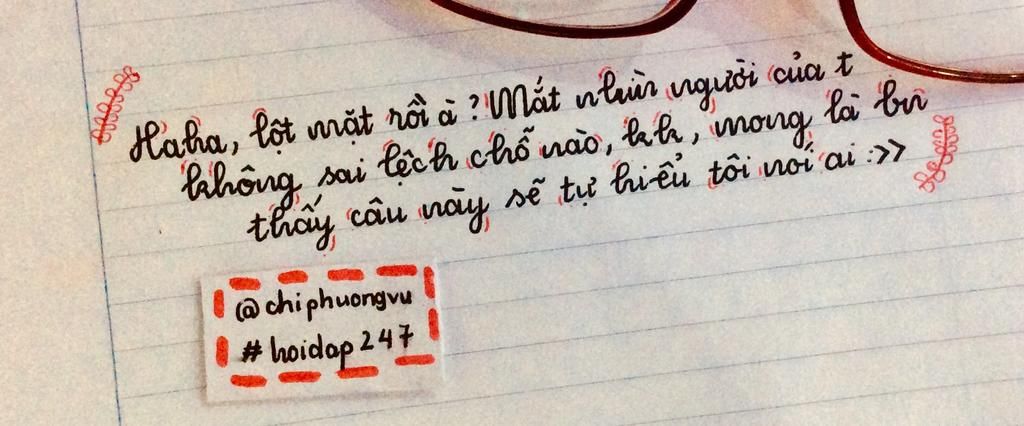 Haha, lột mặt rồi à? Mắt nhìn người của t
không sai lệch chỗ nào, kk, mong là bn
thấy câu này sẽ tự hiểu tôi nói ai :>>
@chiphuongvu
#hoidap247